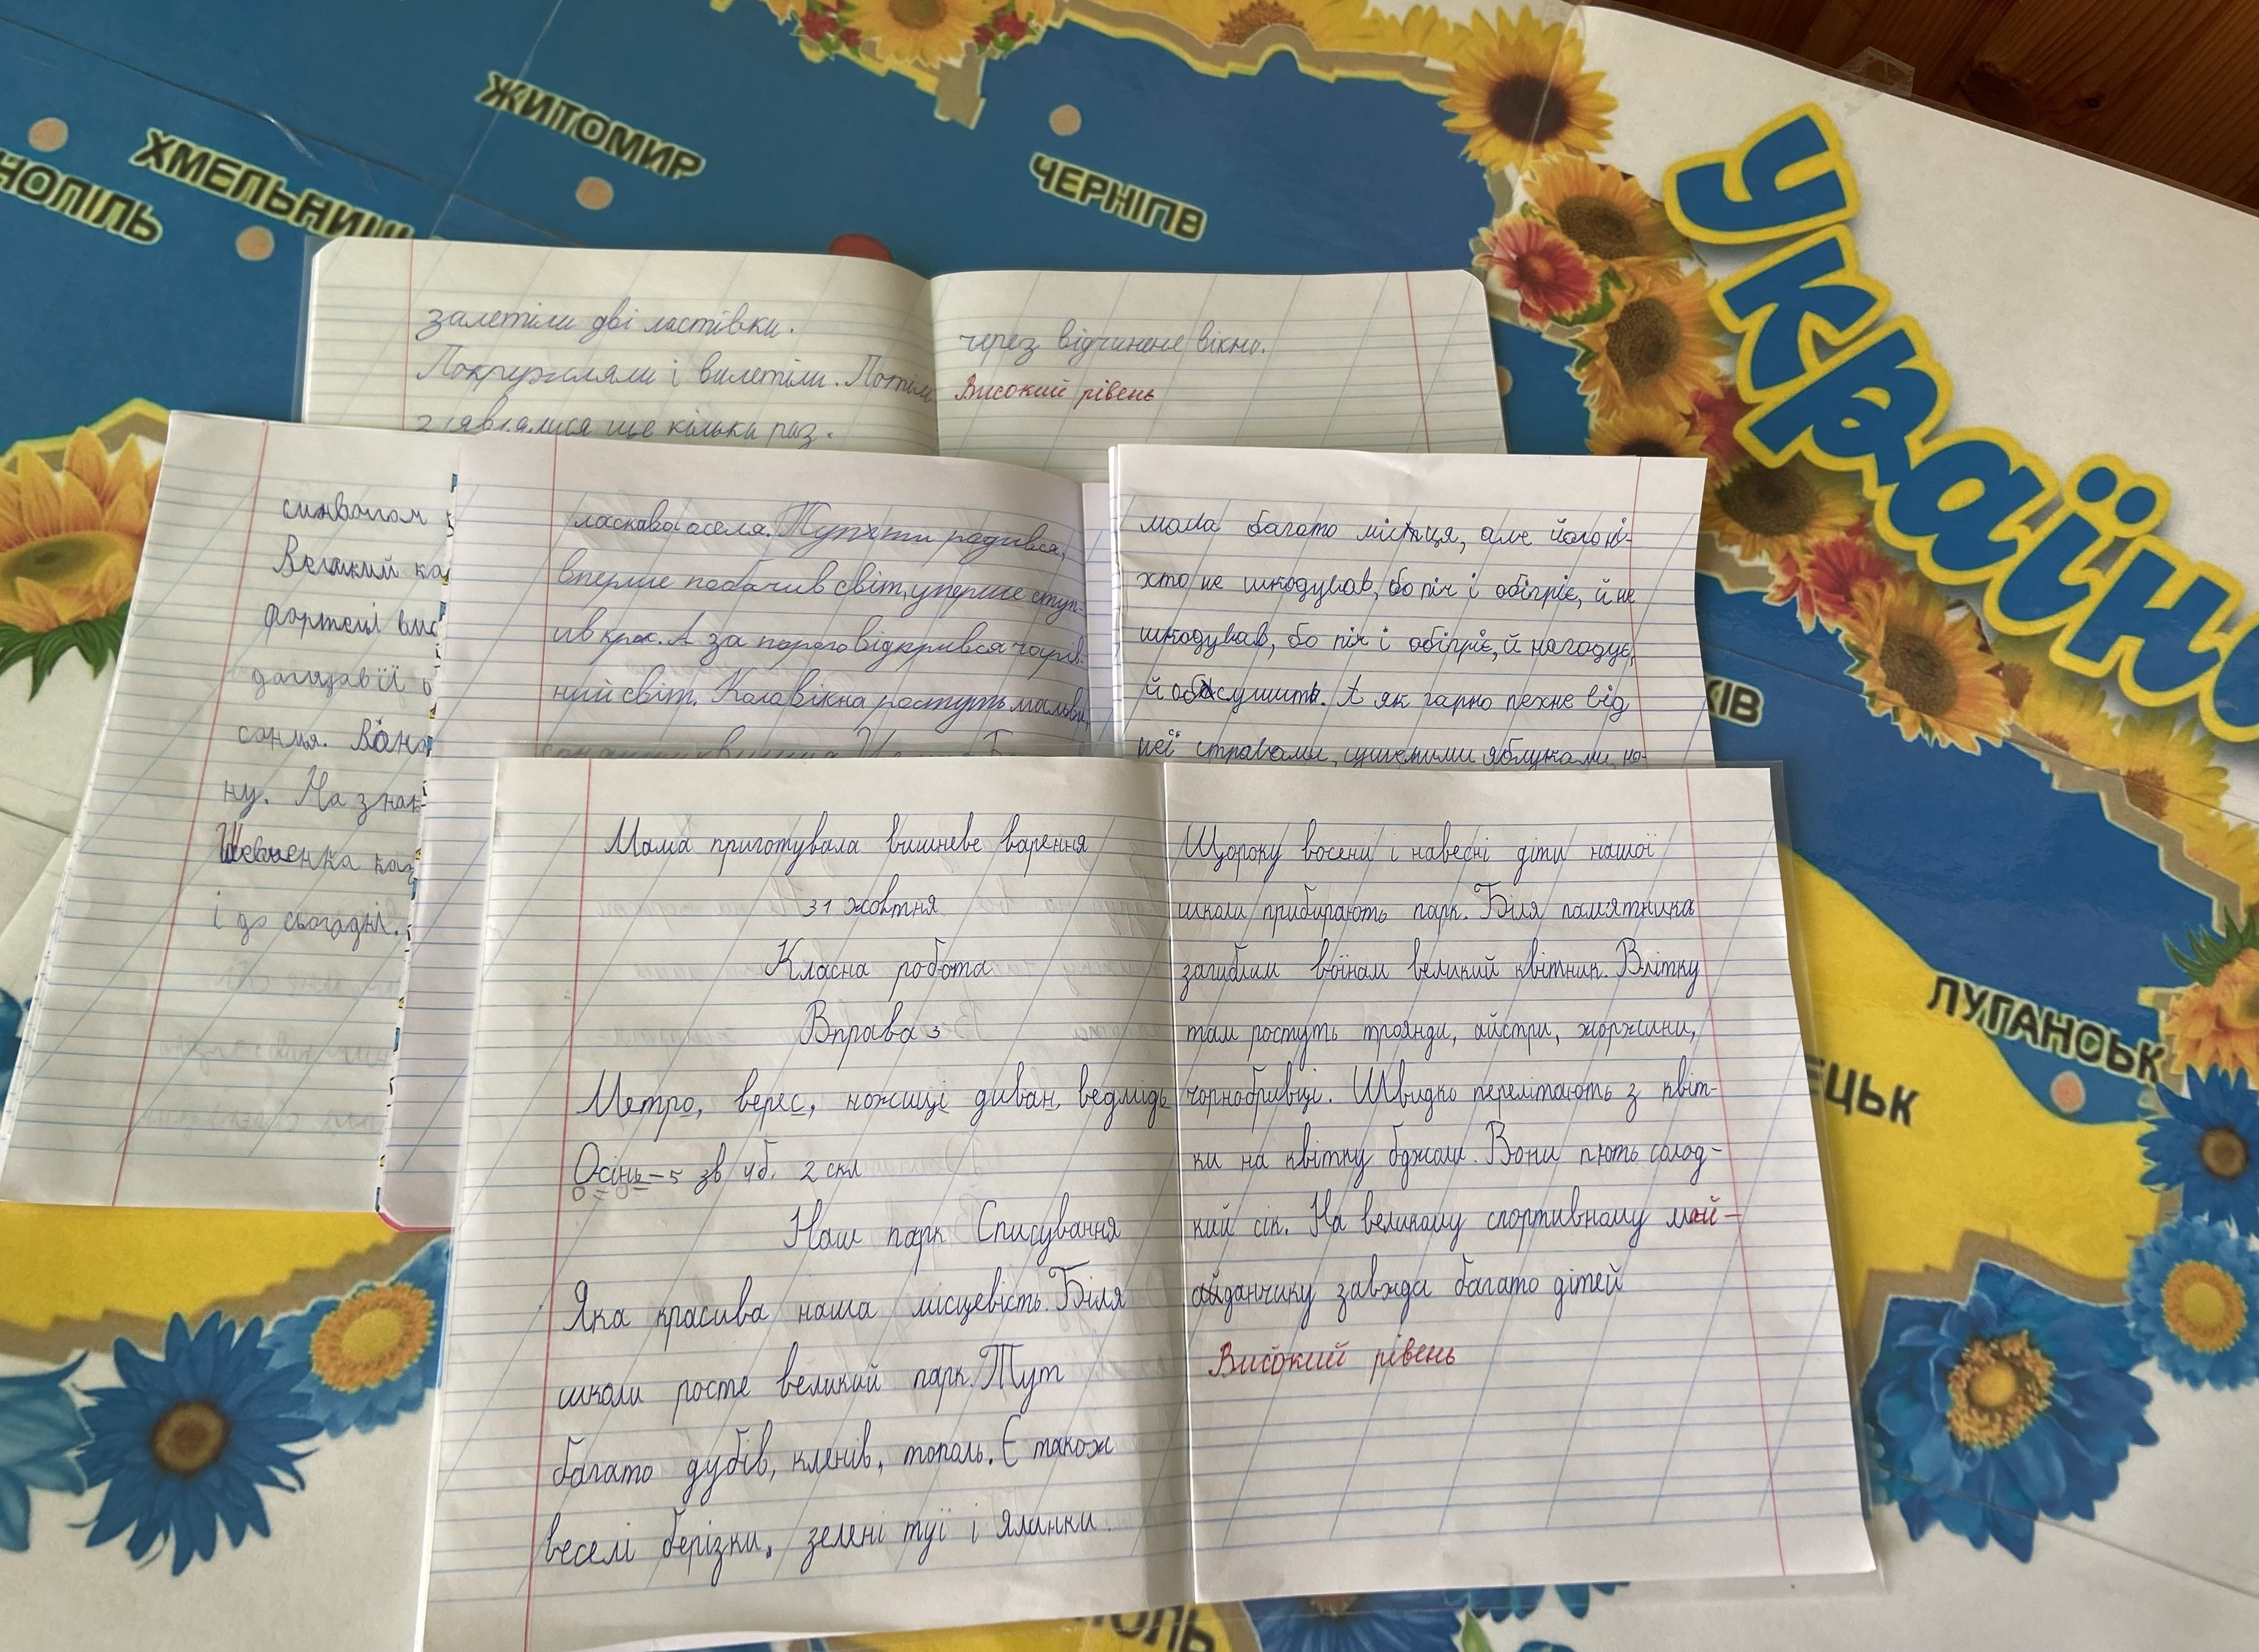 ЖИТОМИР
ХМЕЛЬНИЦ
НОПІЛЬ
ЧЕРНІГІВ
Україн
залетіли дві ластівки.
Покружляли і вилетіли. Потім
з'являлися ще кілька раз.
через відчинене вікно.
Високий рівень
символом
Великий
фортеці
доглядав її
сонця. Вона
ну. На знак
Шевченка каз
і до сьогодні.
ласкава оселя. Тут ти родився,
вперше побачив світ, уперше ступ-
ив крок. А за порого відкрився чарів-
ний світ. Коло вікна ростуть мальви,
мала багато місця, але його ні-
хто не шкодував, бо піч і обігріє, й не
шкодував, бо піч і обігріє, й нагодує,
й обсушить. А як гарно пахне від
неї травами, сушеними яблуками, на-
КІВ
Мама приготувала вишневе варення
31 жовтня
Класна робота
Вправа 3
Метро, верес, ножиці диван, ведмідь
Осінь – 5 зв 4 б. 2 скл
Наш парк Списування
Яка красива наша місцевість. Біля
школи росте великий парк. Тут
багато дубів, кленів, тополь. Є також
веселі берізки, зелені туї і ялинки.
Щороку восени і навесні діти нашої
школи прибирають парк. Біля пам'ятника
загиблим воїнам великий квітник. Влітку
там ростуть троянди, айстри, жоржини,
чорнобривці. Швидко перелітають з квіт-
ки на квітку бджоли. Вони п'ють солод-
кий сік. На великому спортивному май-
айданчику завжди багато дітей
Високий рівень
ЛУГАНСЬК
ЕЦЬК
ПОЛЬ